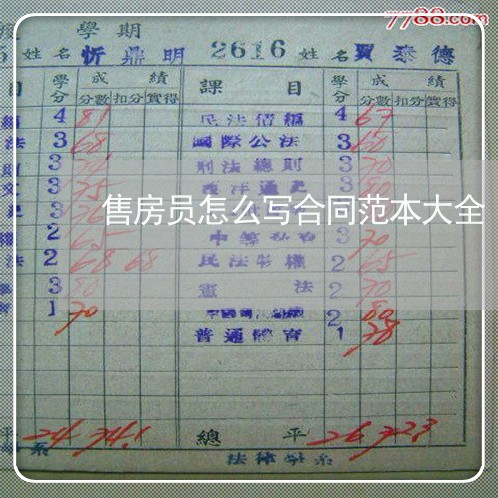 7788.com
學期
姓名 忻鼎明 2616 姓名 賈泰德
目 學分 成績 課目 學分 成績
分數 扣分 實得 分數 扣分 實得
4 81 民法債編 4 67
法 3 68 國際公法 3 60
3 刑法總則 3 70
3 75 西洋通史 3
售房员怎么写合同范本大全
2 65 3 70
法 2 68 68 民法物權 2 65
3 80 憲法 2 70
1 70 2 80
普通體育 1 78
平 24 74.1 總平 26 72.3
系 法律學系